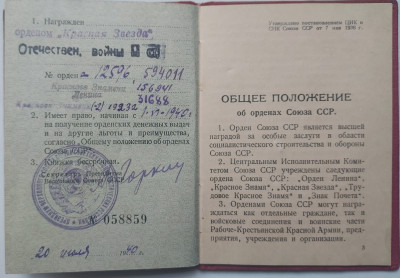 1. Награжден
орденом „Красная Звезда"
Отечествен. войны II
№ орден 12596, 594011
Красного Знамени 156941
Ленина 31688
19232
2. Имеет право, начиная с
на получение орденских денежных выдач
и на другие льготы и преимущества,
согласно „Общему положению об орденах
Союза ССР".
3. Книжка бессрочная.
Секретарь Президиума
№ 058859
20 июля
Утверждено постановлением ЦИК и
СНК Союза ССР от 7 мая 1936 г.
ОБЩЕЕ ПОЛОЖЕНИЕ
об орденах Союза ССР.
1. Орден Союза ССР является высшей
наградой за особые заслуги в области
социалистического строительства и обороны
Союза ССР.
2. Центральным Исполнительным Коми-
тетом Союза ССР учреждены следующие
ордена Союза ССР: „Орден Ленина",
„Красное Знамя", „Красная Звезда", „Трудо-
вое Красное Знамя" и „Знак Почета".
3. Орденами Союза ССР могут награж-
даться как отдельные граждане, так и
войсковые соединения и воинские части
Рабоче-Крестьянской Красной Армии, пред-
приятия, учреждения и организации.
3